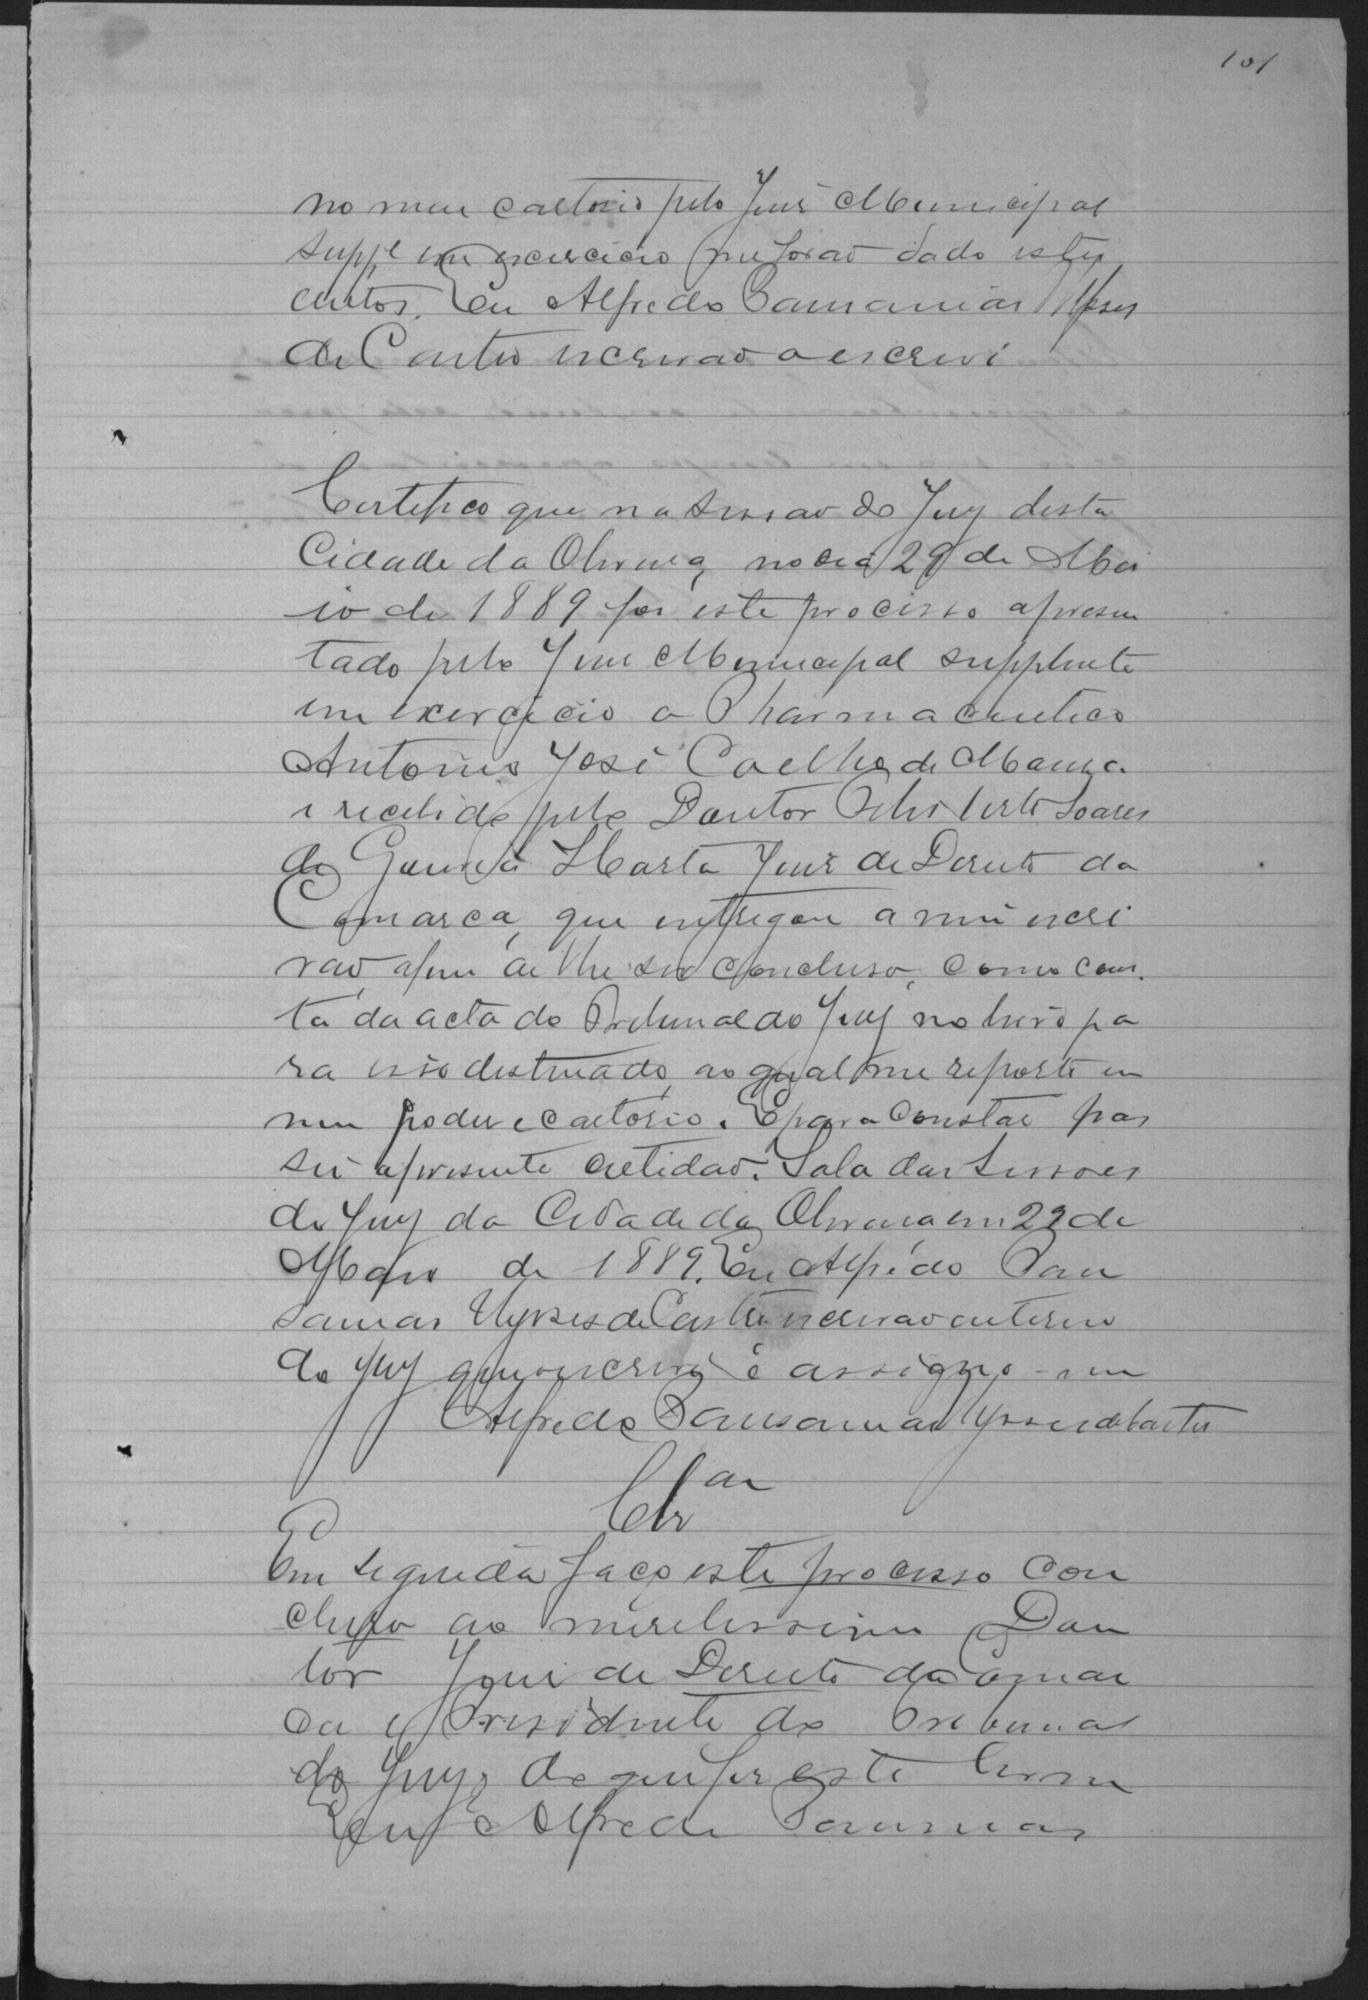 101
no meu cartorio pelo Juiz Municipal
suppe em exercicio me forão dado estes
autos. Eu Alfredo Pansanias Ulysses
de Castro escrivão o escrevi
Certifico que na sessão do Jury desta
Cidade da Oliveira, no dia 29 de Mai
io de 1889 foi este processo apresen
tado pelo Juiz Municipal supplente
em exercicio o Pharmaceutico
Antonio José Coelho de Moura
e recebido pelo Doutor Soares
de Gouvêa Horta Juiz de Direito da
Comarca, que entregou a mim escri
vão, afim de lhe ser concluso, como cons.
ta da acta do Tribunal do Jury no livro pa
ra isso destinado, ao qual me reporto em
meu poder e cartorio. E para constar pas
sei a presente certidão. Sala das Sessões
do Jury da Cidade da Oliveira em 29 de
Maio de 1889. Eu Alfredo Pau
sanias Ulysses de Castro escrivão interino
do Jury que o escrevi e assigno-me
Alfredo Pausanias Ulysses de Castro
Clsam
Em seguida faço este processo con
cluso ao meretissimo Dou
tor Juiz de Direito da Comar
ca e Presidente do Tribunal
do Jury, do que fiz este termo
Eu, Alfredo Pausanias